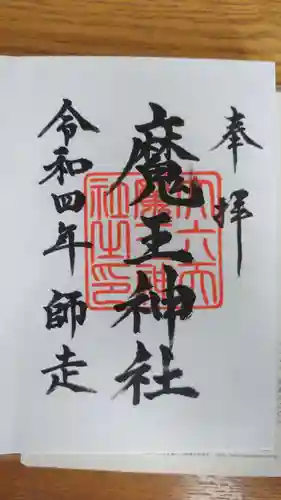 奉拝
魔王神社
令和四年師走